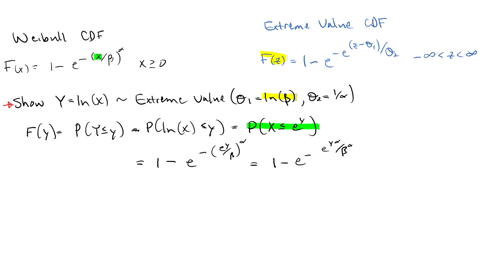 Weibull CDF
F(x) = 1 - e^{-(x/β)^α}   x ≥ 0
Extreme Value CDF
F(z) = 1 - e^{-e^{(z-θ₁)/θ₂}}   -∞ < z < ∞
→ Show Y = ln(x) ~ Extreme Value (θ₁ = ln(β), θ₂ = 1/α)
F(y) = P(Y ≤ y) = P(ln(x) ≤ y) = P(X ≤ e^y)
= 1 - e^{-(e^y/β)^α} = 1 - e^{-e^{yα}/β^α}